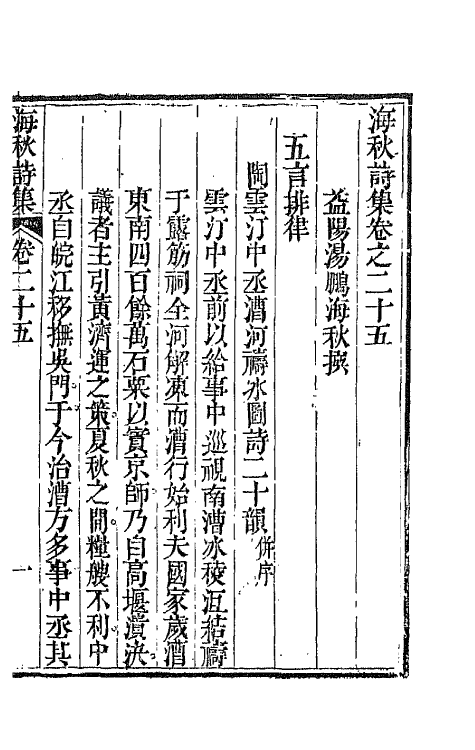 海秋詩集卷之二十五
益陽湯鵬海秋撰
五言排律
陶雲汀中丞漕河禱冰圖詩二十韻併序
雲汀中丞前以給事中巡視南漕冰稜沍結禱
于露筋祠全河解凍而漕行始利夫國家歲漕
東南四百餘萬石粟以實京師乃自高堰潰決
議者主引黃濟運之策夏秋之間糧艘不利中
丞自皖江移撫吳門于今治漕方多事中丞其
海秋詩集 卷二十五 一